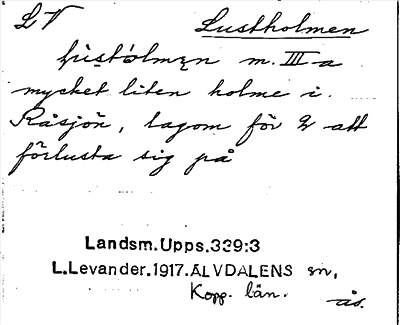 LV Lustholmen
lùstolmęn m. III-a
mycket liten holme i
Råsjön, lagom för 2 att
förlusta sig på
Landsm.Upps.339:3
L.Levander.1917.ÄLVDALENS sn,
Kopp. län.
ås.